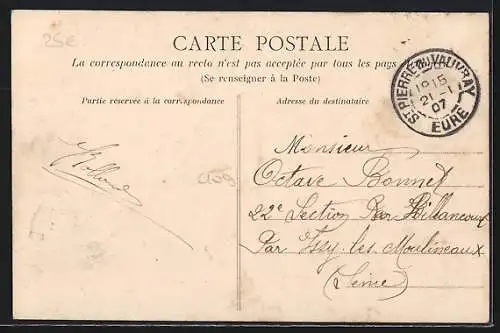 25€
CARTE POSTALE
La correspondance au recto n'est pas acceptée par tous les pays
(Se renseigner à la Poste)
Partie réservée à la correspondance
Adresse du destinataire
ST PIERRE DU VAUVRAY
18 15
21 - 1
07
EURE
Monsieur
Octave Bonnet
22e Section Par Billancourt
Par Issy-les-Moulineaux
(Seine)